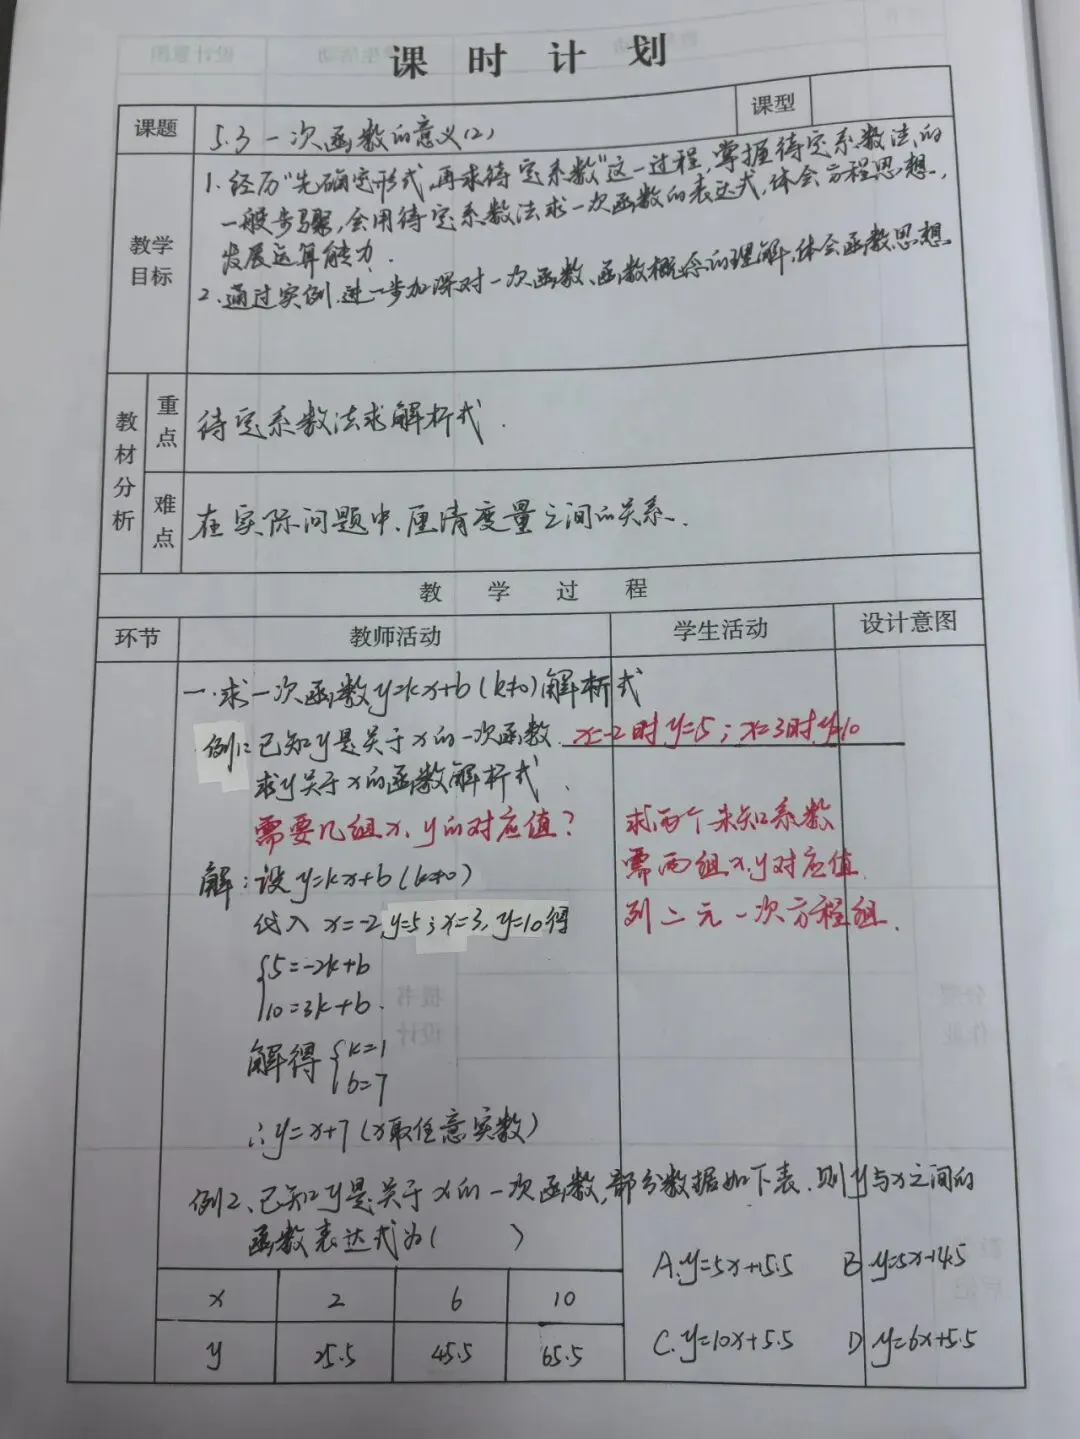 课时计划
课题 5.3 一次函数的意义(2) 课型
教学目标
1. 经历"先确定形式,再求待定系数"这一过程,掌握待定系数法的
一般步骤,会用待定系数法求一次函数的表达式,体会方程思想,
发展运算能力.
2. 通过实例,进一步加深对一次函数、函数概念的理解,体会函数思想.
教材分析
重点 待定系数法求解析式.
难点 在实际问题中,厘清度量之间的关系.
教学过程
环节 教师活动 学生活动 设计意图
一. 求一次函数y=kx+b(k≠0)解析式
例1: 已知y是关于x的一次函数. x=-2时y=5; x=3时y=10
求y关于x的函数解析式.
需要几组x、y的对应值?
求两个未知系数
需两组x.y对应值.
列二元一次方程组.
解: 设y=kx+b(k≠0)
代入 x=-2,y=5; x=3, y=10得
{5=-2k+b
10=3k+b.
解得{k=1
b=7
∴y=x+7(x取任意实数)
例2、已知y是关于x的一次函数,部分数据如下表.则y与x之间的
函数表达式为( )
A.y=5x+15.5 B y=5x-14.5
C.y=10x+5.5 D y=6x+5.5
x 2 6 10
y 25.5 45.5 65.5